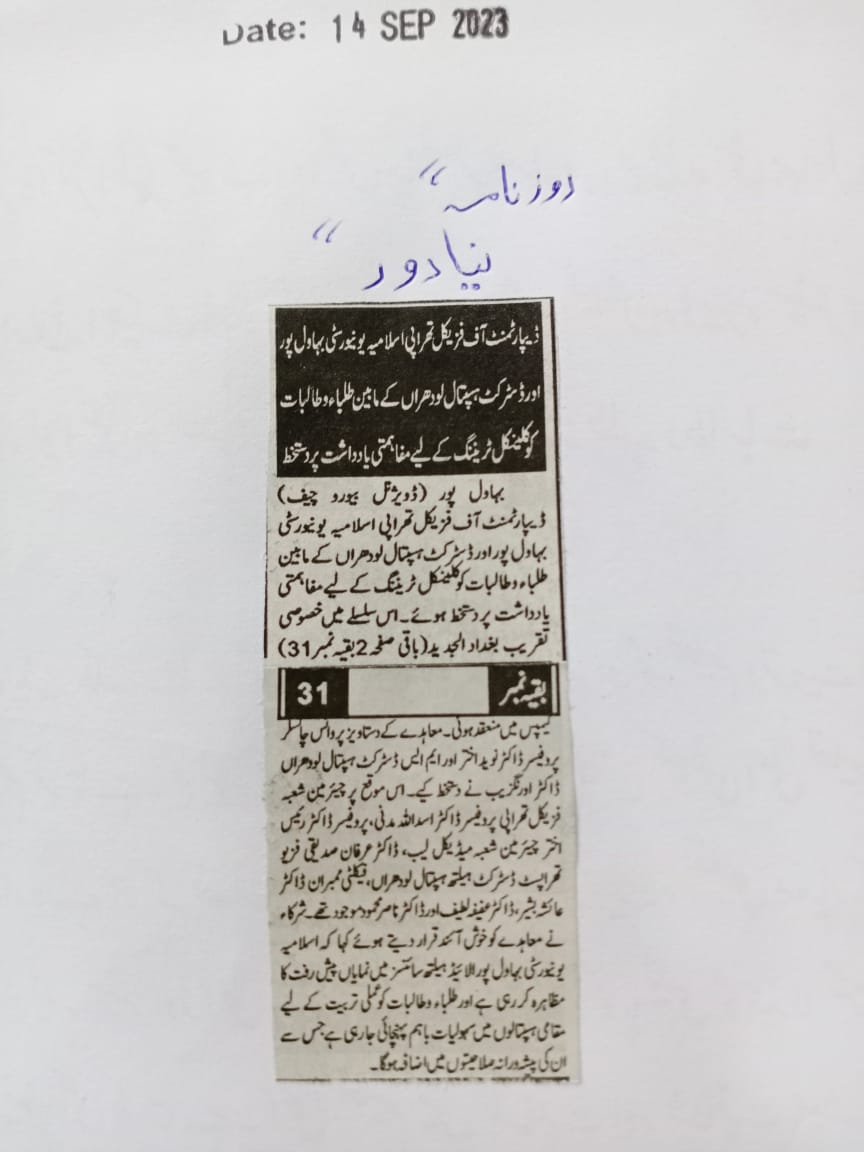 Date: 14 SEP 2023
روزنامہ "
نیا دور "
ڈیپارٹمنٹ آف فزیکل تھراپی اسلامیہ یونیورسٹی بہاول پور
اور ڈسٹرکٹ ہسپتال لودھراں کے مابین طلباء و طالبات
کو کلینکل ٹریننگ کے لیے مفاہمتی یادداشت پر دستخط
بہاول پور (ڈویژنل بیورو چیف)
ڈیپارٹمنٹ آف فزیکل تھراپی اسلامیہ یونیورسٹی
بہاول پور اور ڈسٹرکٹ ہسپتال لودھراں کے مابین
طلباء و طالبات کو کلینکل ٹریننگ کے لیے مفاہمتی
یادداشت پر دستخط ہوئے۔ اس سلسلے میں خصوصی
تقریب بغداد الجدید (باقی صفحہ 2 بقیہ نمبر 31)
بقیہ نمبر 31
کیمپس میں منعقد ہوئی۔ معاہدے کے دستاویز پر وائس چانسلر
پروفیسر ڈاکٹر نوید اختر اور ایم ایس ڈسٹرکٹ ہسپتال لودھراں
ڈاکٹر اورنگزیب نے دستخط کیے۔ اس موقع پر چیئرمین شعبہ
فزیکل تھراپی پروفیسر ڈاکٹر اسد اللہ مدنی، پروفیسر ڈاکٹر رئیس
اختر چیئرمین شعبہ میڈیکل لیب، ڈاکٹر عرفان صدیقی فزیو
تھراپسٹ ڈسٹرکٹ ہیلتھ ہسپتال لودھراں، فیکلٹی ممبران ڈاکٹر
عائشہ بشیر، ڈاکٹر عفیفہ لطیف اور ڈاکٹر ناصر محمود موجود تھے۔ شرکاء
نے معاہدے کو خوش آئند قرار دیتے ہوئے کہا کہ اسلامیہ
یونیورسٹی بہاول پور الائیڈ ہیلتھ سائنسز میں نمایاں پیش رفت کا
مظاہرہ کر رہی ہے اور طلباء و طالبات کو عملی تربیت کے لیے
مقامی ہسپتالوں میں سہولیات باہم پہنچائی جا رہی ہے جس سے
ان کی پیشہ ورانہ صلاحیتوں میں اضافہ ہوگا۔